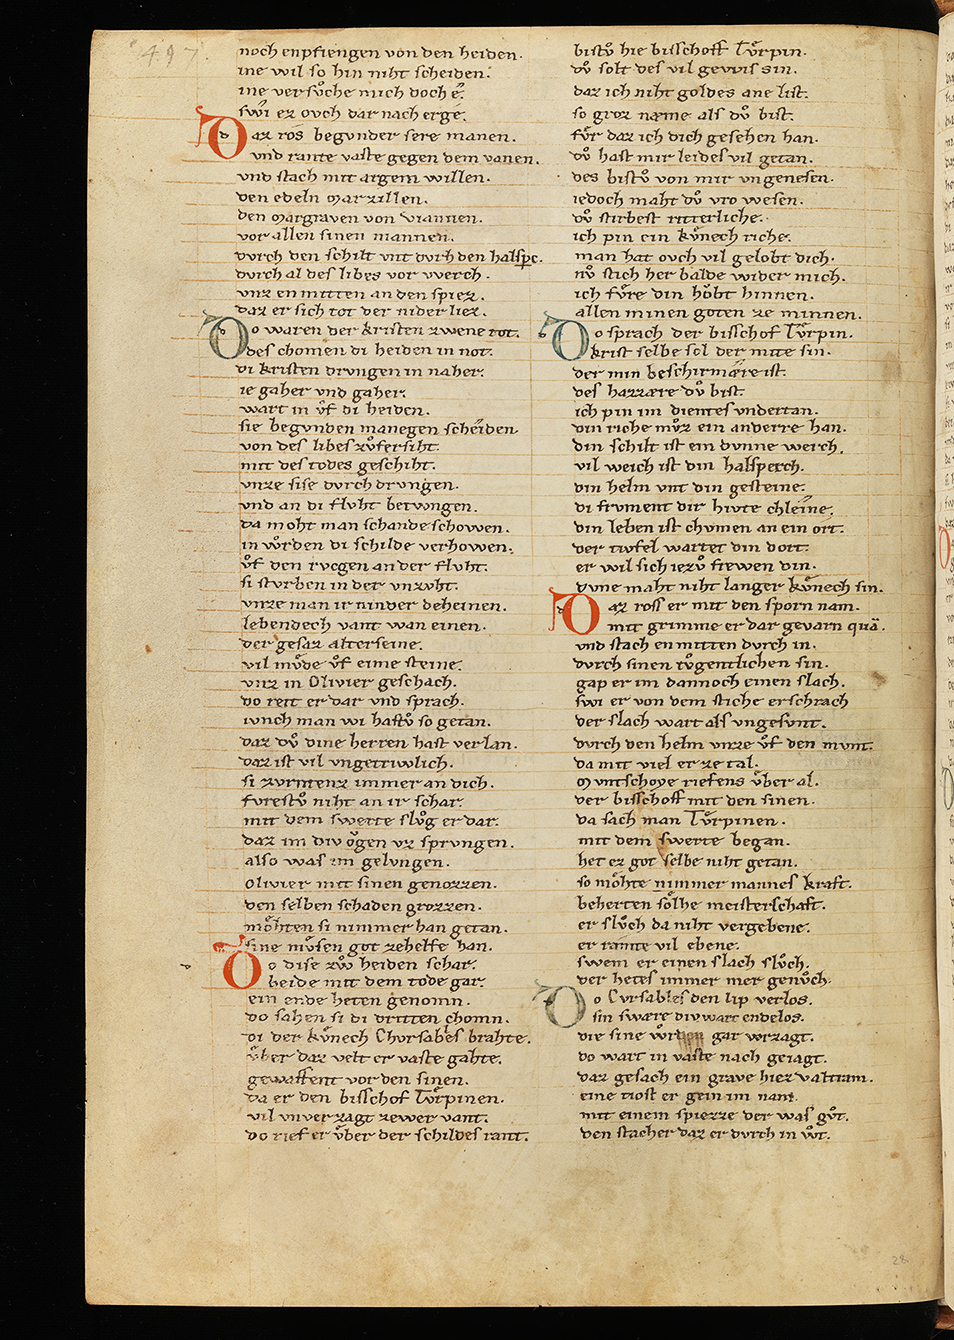 497.
noch enpfiengen von den heiden.
ine wil so hin niht scheiden.
ine versůche mich doch é.
swi ez ovch dar nach ergé.
Daz ros begunder sere manen.
vnd rante vaste gegen dem vanen.
vnd stach mit argem willen.
den edeln Marzillen.
den Margraven von Viannen.
vor allen sinen mannen.
dvrch den schilt vnt dvrh den halsp̱c.
dvrch al des libes vor vverch.
vnz en mitten an den spiez.
daz er sich tot der nider liez.
Do waren der kristen zwene tot.
des chomen di heiden in not.
di kristen drvngen in naher.
ie gaher vnd gaher.
wart in v̊f di heiden.
sie begvnden manegen scheiden.
von des libes zv̊fersiht.
mit des todes geschiht.
vnze sise dvrch drvngen.
vnd an di flvht betwngen.
da moht man schande schowen.
in wrden di schilde verhowen.
v̊f den rvcgen an der flvht.
si stvrben in der vnzvht.
vnze man ir ninder deheinen.
lebendech vant wan einen.
der gesaz alterseine.
vil mv̊de v̊f eime steine.
vnz in Olivier geschach.
do reit er dar vnd sprach.
ivnch man wi hastv̊ so getan.
daz dv̊ dine herren hast verlan.
daz ist vil vngetriwlich.
si zvrntenz immer an dich.
fvrestv̊ niht an ir schar.
mit dem swerte slv̊g er dar.
daz im div ogen vz sprvngen.
also was im gelvngen.
Olivier mit sinen genozzen.
den selben schaden grozzen.
mohten si nimmer han getan.
sine mv̊sen got zehelfe han.
Do dise zwo heiden schar.
beide mit dem tode gar.
ein ende heten genomn.
do sahen si di dritten chomn.
di der kv̊nech Chvrsables brahte.
v̊ber daz velt er vaste gahte.
gewaffent vor den sinen.
da er den bisschof Tv̊rpinen.
vil vnverzagt zewer vant.
do rief er v̊ber der schildes rant.
bistv̊ hie bisschoff Tv̊rpin.
dv̊ solt des vil gewis sin.
daz ich niht goldes ane list.
so groz næme als dv̊ bist.
fv̊r daz ich dich gesehen han.
dv̊ hast mir leides vil getan.
des bistv̊ von mir vngenesen.
iedoch maht dv̊ vro wesen.
dv̊ stirbest ritterliche.
ich pin ein kv̊nech riche.
man hat ovch vil gelobt dich.
nv̊ stich her balde wider mich.
ich fv̊re din hobt hinnen.
allen minen goten ze minnen.
Do sprach der bisschof Tv̊rpin.
krist selbe sol der mite sin.
der min beschirmære ist.
des hazzære dv̊ bist.
ich pin im dientes vndertan.
din riche mv̊z ein anderre han.
din schilt ist ein dvnne werch.
vil weich ist din halsperch.
din helm vnt din gesteine.
di frvment dir hivte chleine.
din leben ist chvmen an ein ort.
der tivfel wartet din dort.
er wil sich iezv̊ frewen din.
dvne maht niht langer kv̊nech sin.
Daz ross er mit den sporn nam.
mit grimme er dar gevarn quā.
vnd stach en mitten dvrch in.
dvrch sinen tv̊gentlichen sin.
gap er im dannoch einen slach.
swi er von dem stiche erschrach
der slach wart als vngesvnt.
dvrch den helm vnze v̊f den mvnt.
da mit viel er ze tal.
Mvntschoye riefens v̊ber al.
der bisschoff mit den sinen.
da sach man Tv̊rpinen.
mit dem swerte began.
het ez got selbe niht getan.
so mohte nimmer mannes kraft.
beherten solhe meisterschaft.
er slv̊ch da niht vergebene.
er ramte vil ebene.
swem er einen slach slv̊ch.
der hetes immer mer genv̊ch.
Do Cvrsables den lip verlos.
sin swære div wart endelos.
die sine gar vrzagt.
do wart in vaste nach geiagt.
daz gesach ein grave hiez valtram.
eine tiost er gein im nam.
mit einem spiezze der was gv̊t.
den stacher daz er dvrch in wt.
28